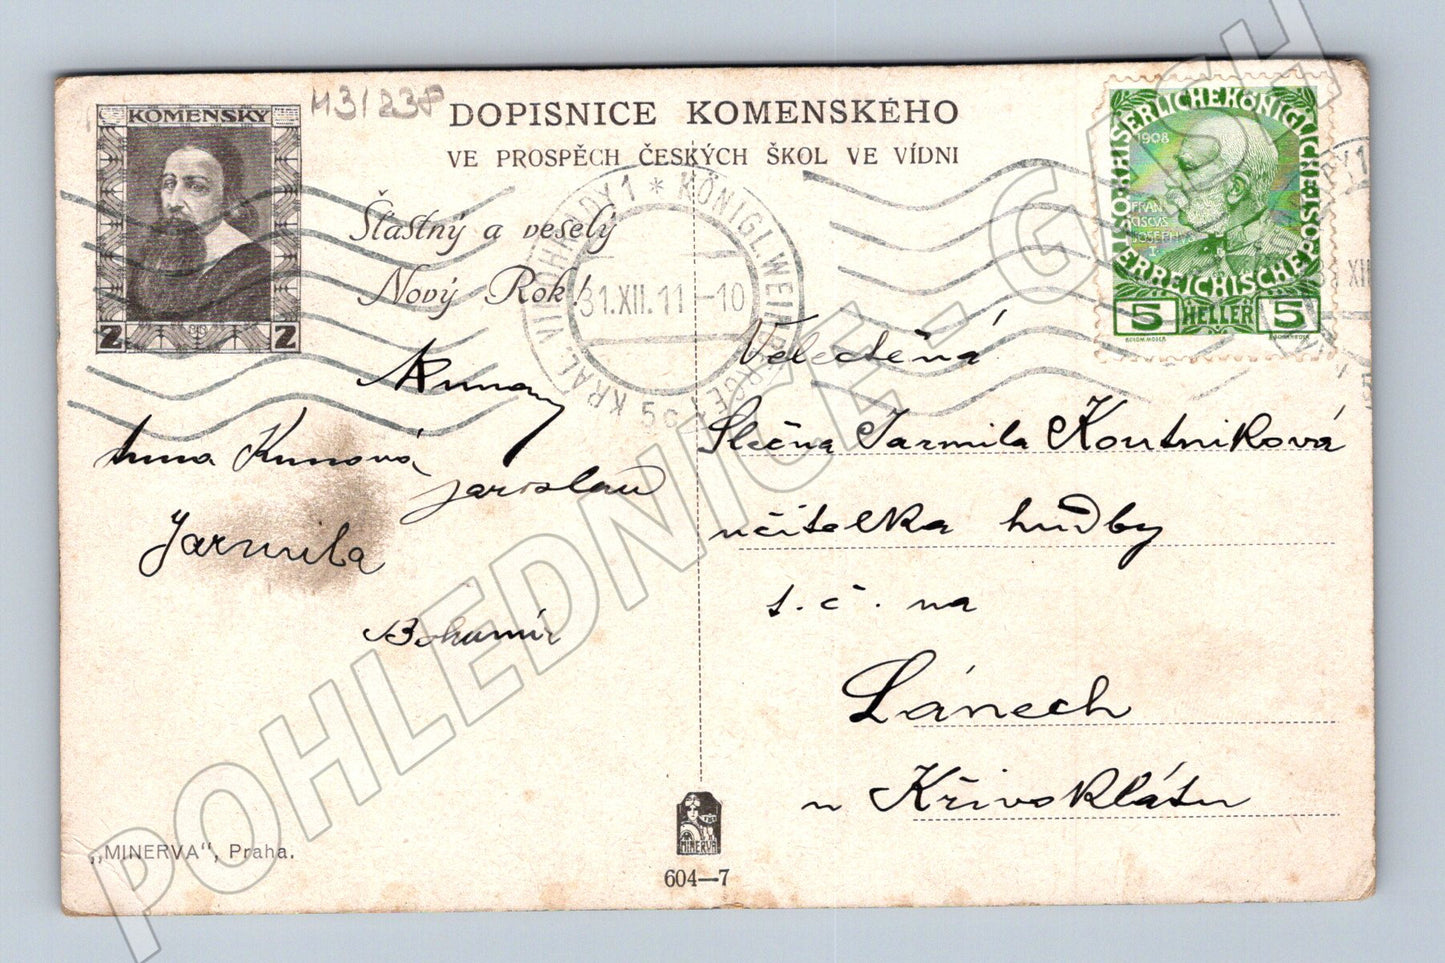 KOMENSKÝ
2 2
M31238
DOPISNICE KOMENSKÉHO
VE PROSPĚCH ČESKÝCH ŠKOL VE VÍDNI
KAISERLICHEKÖNIGLICHE
ÖSTERREICHISCHE POST
1908
FRAN
CISCVS
JOSEPH
5 HELLER 5
KRÁL. VINOHRADY 1 * KÖNIGL. WEINBERGE
31.XII.11 -10
Šťastný a veselý
Nový Rok!
Anna Kunová
Jaroslav
Jarmila
Bohumír
Velectěná
Slečna Jarmila Koutníková
učitelka hudby
t. č. na
Lánech
u Křivoklátu
MINERVA
„MINERVA“, Praha.
604—7
POHLEDNICE - GASH